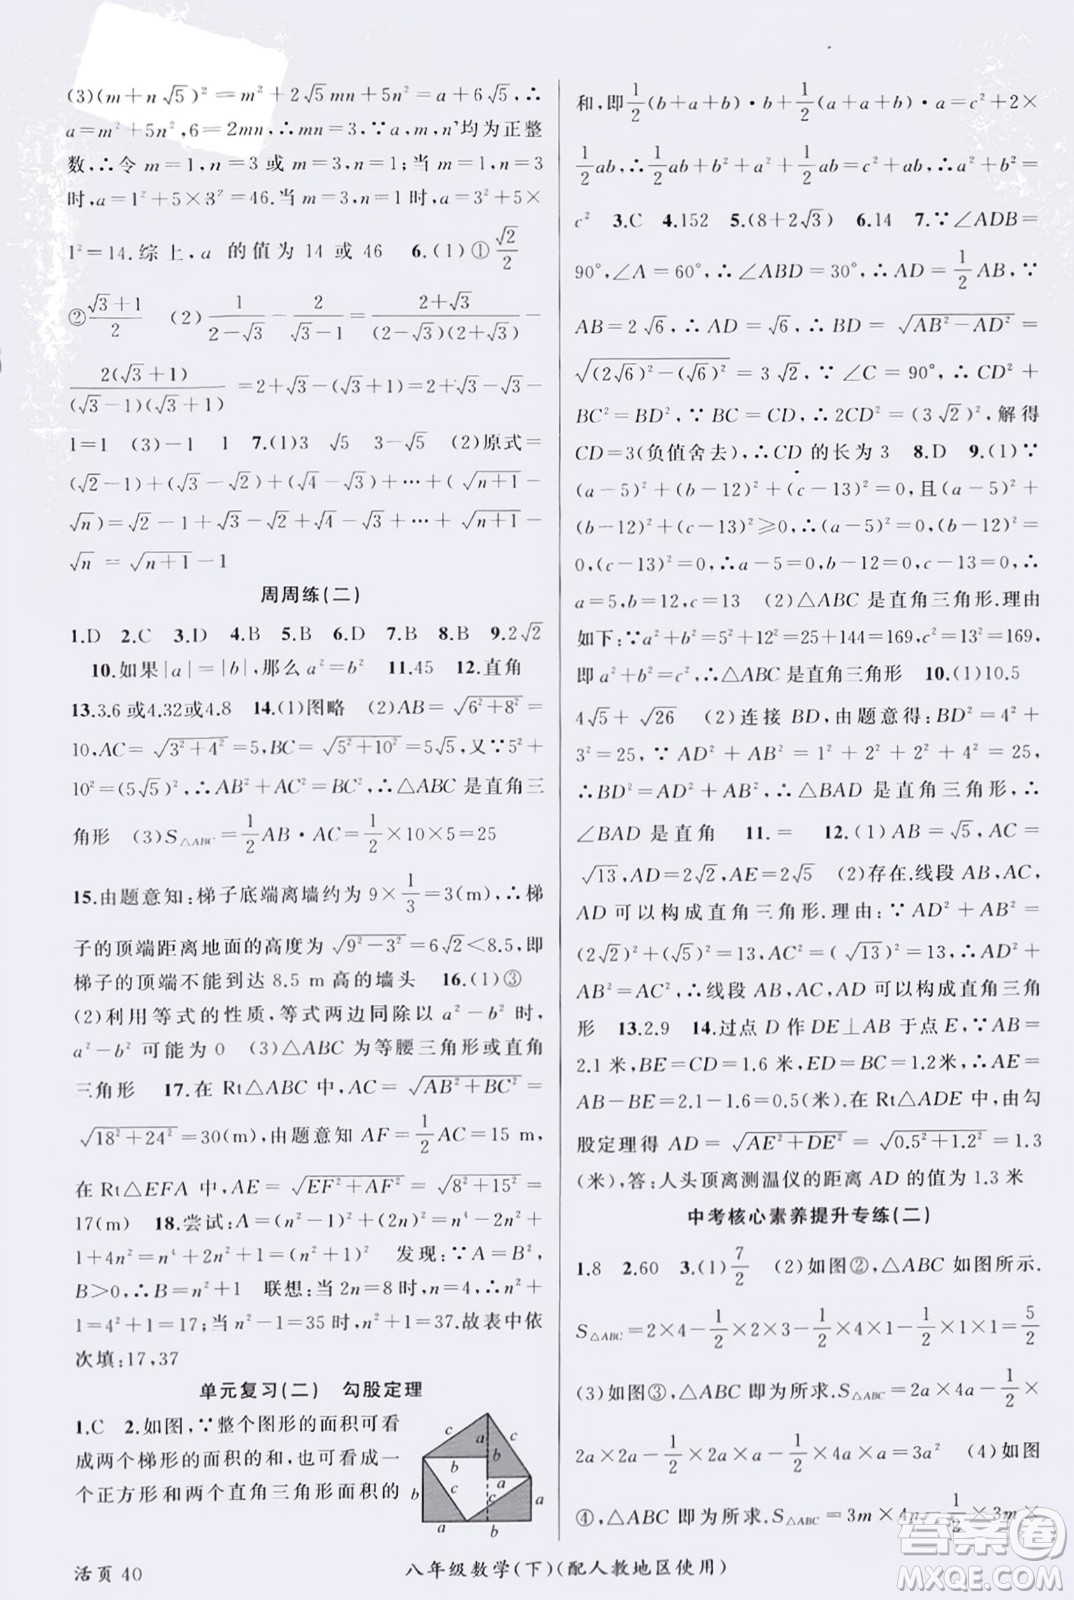 (3)(m+n√5)²=m²+2√5mn+5n²=a+6√5,∴
a=m²+5n²,6=2mn,∴mn=3,∵a,m,n均为正整
数,∴令 m=1,n=3 或 m=3,n=1;当 m=1,n=3
时,a=1²+5×3²=46.当 m=3,n=1 时,a=3²+5×
1²=14.综上,a 的值为 14 或 46 6.(1)①√2/2
②(√3+1)/2 (2)1/(2-√3)-2/(√3-1)=(2+√3)/((2-√3)(2+√3))-
2(√3+1)/((√3-1)(√3+1))=2+√3-(√3+1)=2+√3-√3-
1=1 (3)-1 1 7.(1)3 √5 3-√5 (2)原式=
(√2-1)+(√3-√2)+(√4-√3)+…+(√(n+1)-
√n)=√2-1+√3-√2+√4-√3+…+√(n+1)-
√n=√(n+1)-1
周周练(二)
1.D 2.C 3.D 4.B 5.B 6.D 7.B 8.B 9.2√2
10.如果|a|=|b|,那么 a²=b² 11.45 12.直角
13.3.6或4.32或4.8 14.(1)图略 (2)AB=√(6²+8²)=
10,AC=√(3²+4²)=5,BC=√(5²+10²)=5√5,又∵5²+
10²=(5√5)²,∴AB²+AC²=BC²,∴△ABC 是直角三
角形 (3)S△ABC=1/2AB·AC=1/2×10×5=25
15.由题意知:梯子底端离墙约为 9×1/3=3(m),∴梯
子的顶端距离地面的高度为√(9²-3²)=6√2<8.5,即
梯子的顶端不能到达 8.5 m 高的墙头 16.(1)③
(2)利用等式的性质,等式两边同除以 a²-b²,而
a²-b² 可能为 0 (3)△ABC 为等腰三角形或直角
三角形 17.在 Rt△ABC 中,AC=√(AB²+BC²)=
√(18²+24²)=30(m),由题意知 AF=1/2AC=15 m,
在 Rt△EFA 中,AE=√(EF²+AF²)=√(8²+15²)=
17(m) 18.尝试:A=(n²-1)²+(2n)²=n⁴-2n²+
1+4n²=n⁴+2n²+1=(n²+1)² 发现:∵A=B²,
B>0,∴B=n²+1 联想:当 2n=8 时,n=4,∴n²+
1=4²+1=17;当 n²-1=35 时,n²+1=37;故表中依
次填:17,37
单元复习(二) 勾股定理
1.C 2.如图,∵整个图形的面积可看
成两个梯形的面积的和,也可看成一
个正方形和两个直角三角形面积的
c
c
a
b
b
b
c
c
a
a
a
b
和,即1/2(b+a+b)·b+1/2(a+b+a)·a=c²+2×
1/2ab,1/2ab+b²+a²+1/2ab=c²+ab,∴a²+b²=
c² 3.C 4.152 5.(8+2√3) 6.14 7.∵∠ADB=
90°,∠A=60°,∴∠ABD=30°,∴AD=1/2AB,∵
AB=2√6,∴AD=√6,∴BD=√(AB²-AD²)=
√((2√6)²-(√6)²)=3√2,∵∠C=90°,∴CD²+
BC²=BD²,∵BC=CD,∴2CD²=(3√2)²,解得
CD=3(负值舍去),∴CD 的长为 3 8.D 9.(1)∵
(a-5)²+(b-12)²+(c-13)²=0,且(a-5)²+
(b-12)²+(c-13)²≥0,∴(a-5)²=0,(b-12)²=
0,(c-13)²=0,∴a-5=0,b-12=0,c-13=0,∴
a=5,b=12,c=13 (2)△ABC 是直角三角形.理由
如下:∵a²+b²=5²+12²=25+144=169,c²=13²=169,
即 a²+b²=c²,∴△ABC 是直角三角形 10.(1)10.5
4√5+√26 (2)连接 BD,由题意得:BD²=4²+
3²=25,∵AD²+AB²=1²+2²+2²+4²=25,
∴BD²=AD²+AB²,∴△BAD 是直角三角形,
∠BAD 是直角 11.= 12.(1)AB=√5,AC=
√13,AD=2√2,AE=2√5 (2)存在.线段 AB,AC,
AD 可以构成直角三角形.理由:∵AD²+AB²=
(2√2)²+(√5)²=13,AC²=(√13)²=13,∴AD²+
AB²=AC²,∴线段 AB,AC,AD 可以构成直角三角
形 13.2.9 14.过点 D 作 DE⊥AB 于点 E,∵AB=
2.1 米,BE=CD=1.6 米,ED=BC=1.2米,∴AE=
AB-BE=2.1-1.6=0.5(米).在Rt△ADE 中,由勾
股定理得 AD=√(AE²+DE²)=√(0.5²+1.2²)=1.3
(米),答:人头顶离测温仪的距离 AD 的值为 1.3 米
中考核心素养提升专练(二)
1.8 2.60 3.(1)7/2 (2)如图②,△ABC 如图所示.
S△ABC=2×4-1/2×2×3-1/2×1×4-1/2×1×1=5/2
(3)如图③,△ABC 即为所求.S△ABC=2a×4a-1/2×
2a×2a-1/2×a×2a-1/2×4a×a=3a² (4)如图
④,△ABC 即为所求,S△ABC=3m×4n-1/2×3m×
活页 40
八年级数学(下)(配人教地区使用)
答案圈
MXQE.COM